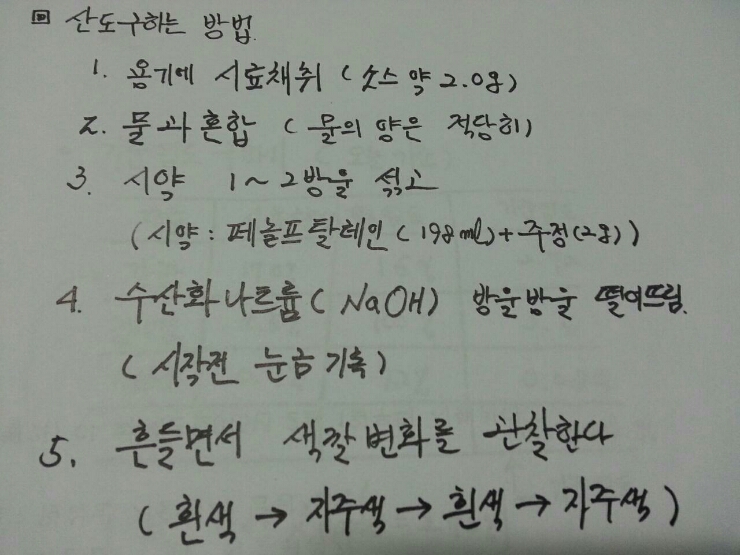 回 산도구하는 방법.
1. 용기에 시료채취 (소스 약 2.0g)
2. 물과 혼합 (물의 양은 적당히)
3. 시약 1~2방울 섞고
(시약 : 페놀프탈레인 (198ml) + 주정(2g))
4. 수산화나트륨 (NaOH) 방울방울 떨어뜨림.
(시작전 눈금기록)
5. 흔들면서 색깔변화를 관찰한다
(흰색 → 자주색 → 흰색 → 자주색)